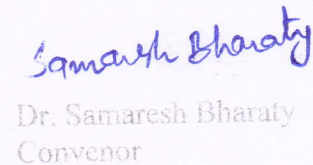 Samaresh Bharaty
Dr. Samaresh Bharaty
Convenor